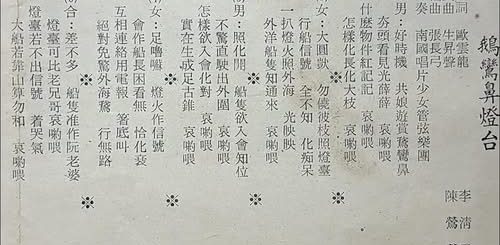 鵝鸞鼻燈台
李清
陳鶯
詞 歐雲龍
曲 生昇聲
曲 張長弓
奏 南國唱片少女管弦樂團
男：好時機 共娘遊賞鵞鸞鼻
夯頭看見光薛薛 哀喲喂
什麼物件紅記記 哀喲喂
怎樣化長化大枝 哀喲喂
女：大圓獃 勿僥彼枝照燈臺
行船信號 全不知 化痴呆
一扒燈火照外海 光映映
外洋船隻知通來 哀喲喂
男：照化開 船隻欲入會知位
不驚直駛出外圍 哀喲喂
怎樣欲入會化對 哀喲喂
實在生成足古錐 哀喲喂
女：足嚕嘛 燈火作信號
會作船長困看無 恰化衰
互相連絡用電報 箸底叫
絕對免驚外海蕃 行無路
合：差不多 船隻准作阮老婆
燈臺可比老兄哥哀喲喂
燈臺若不出信號 着哭氣
大船若靠山算勿和 哀喲喂